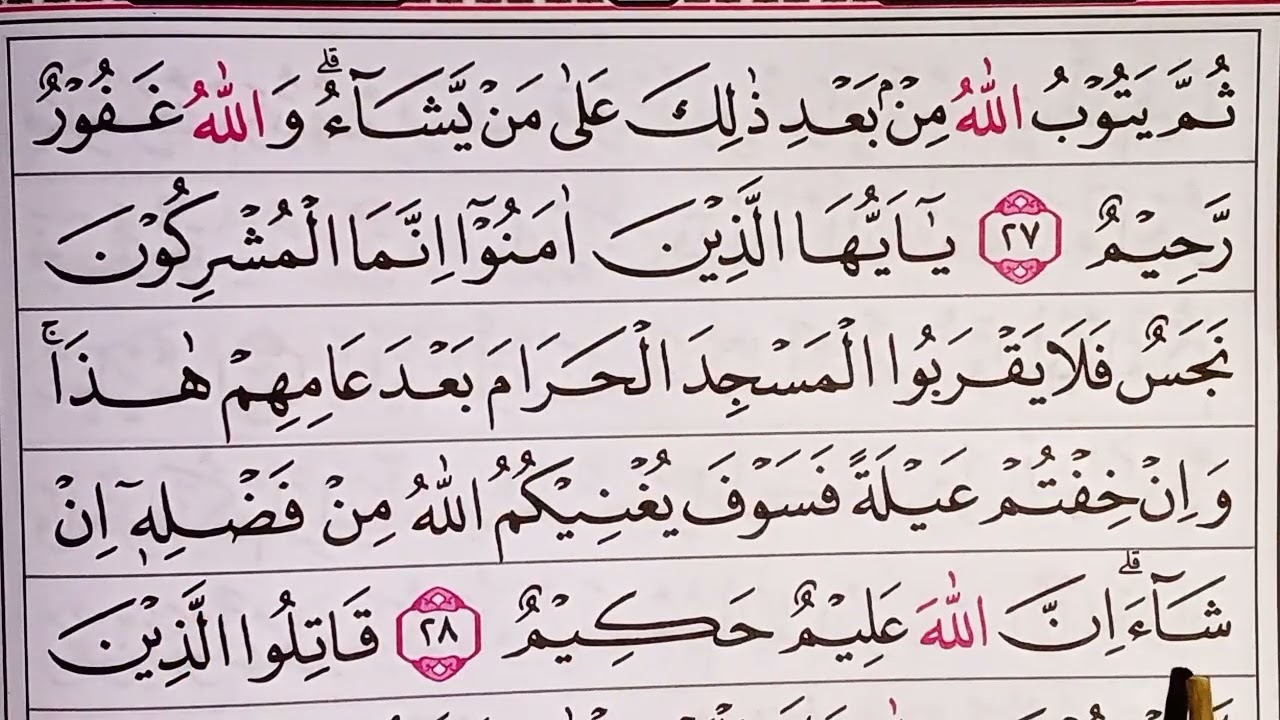 ثُمَّ يَتُوْبُ اللّٰهُ مِنْۢ بَعْدِ ذٰلِكَ عَلٰى مَنْ يَّشَآءُ ؕ وَ اللّٰهُ غَفُوْرٌ
رَّحِيْمٌ ٢٧ يٰۤاَيُّهَا الَّذِيْنَ اٰمَنُوْۤا اِنَّمَا الْمُشْرِكُوْنَ
نَجَسٌ فَلَا يَقْرَبُوا الْمَسْجِدَ الْحَرَامَ بَعْدَ عَامِهِمْ هٰذَا ۚ
وَ اِنْ خِفْتُمْ عَيْلَةً فَسَوْفَ يُغْنِيْكُمُ اللّٰهُ مِنْ فَضْلِهٖۤ اِنْ
شَآءَ ۗ اِنَّ اللّٰهَ عَلِيْمٌ حَكِيْمٌ ٢٨ قَاتِلُوا الَّذِيْنَ